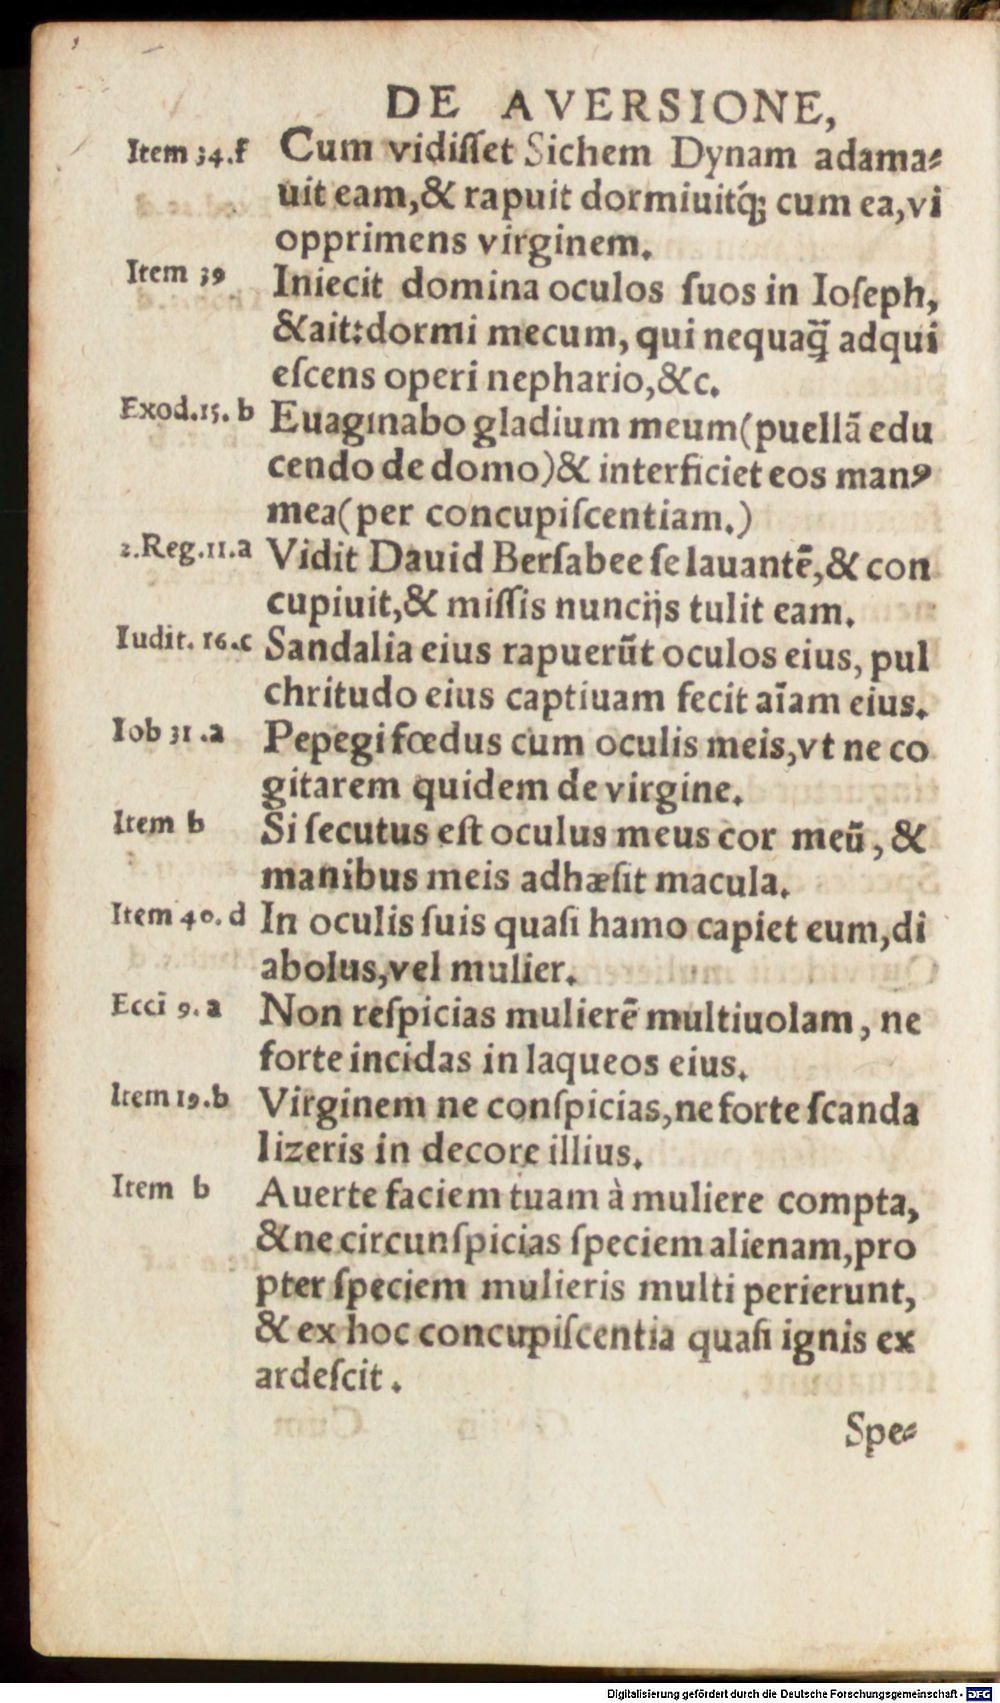 DE AVERSIONE,
Item 34.f Cum vidiſſet Sichem Dynam adama⸗
uit eam,& rapuit dormiuitq́; cum ea,vi
opprimens virginem.
Item 39 Iniecit domina oculos ſuos in Ioſeph,
&ait:dormi mecum, qui nequaq̃ adqui
eſcens operi nephario,&c.
Exod.15. b Euaginabo gladium meum(puellã edu
cendo de domo)& interficiet eos manꝰ
mea(per concupiſcentiam.)
2.Reg.11.a Vidit Dauid Berſabee ſe lauantẽ,& con
cupiuit,& miſſis nuncijs tulit eam.
Iudit. 16.c Sandalia eius rapuerũt oculos eius, pul
chritudo eius captiuam fecit aĩam eius.
Iob 31.a Pepegi fœdus cum oculis meis,vt ne co
gitarem quidem de virgine.
Item b Si ſecutus eſt oculus meus cor meũ, &
manibus meis adhæſit macula.
Item 40. d In oculis ſuis quaſi hamo capiet eum,di
abolus,vel mulier.
Eccĩ 9. a Non reſpicias mulierẽ multiuolam, ne
forte incidas in laqueos eius.
Item 19.b Virginem ne conſpicias,ne forte ſcanda
lizeris in decore illius.
Item b Auerte faciem tuam à muliere compta,
&ne circunſpicias ſpeciem alienam,pro
pter ſpeciem mulieris multi perierunt,
& ex hoc concupiſcentia quaſi ignis ex
ardeſcit.
Spe⸗
Digitalisierung gefördert durch die Deutsche Forschungsgemeinschaft - DFG